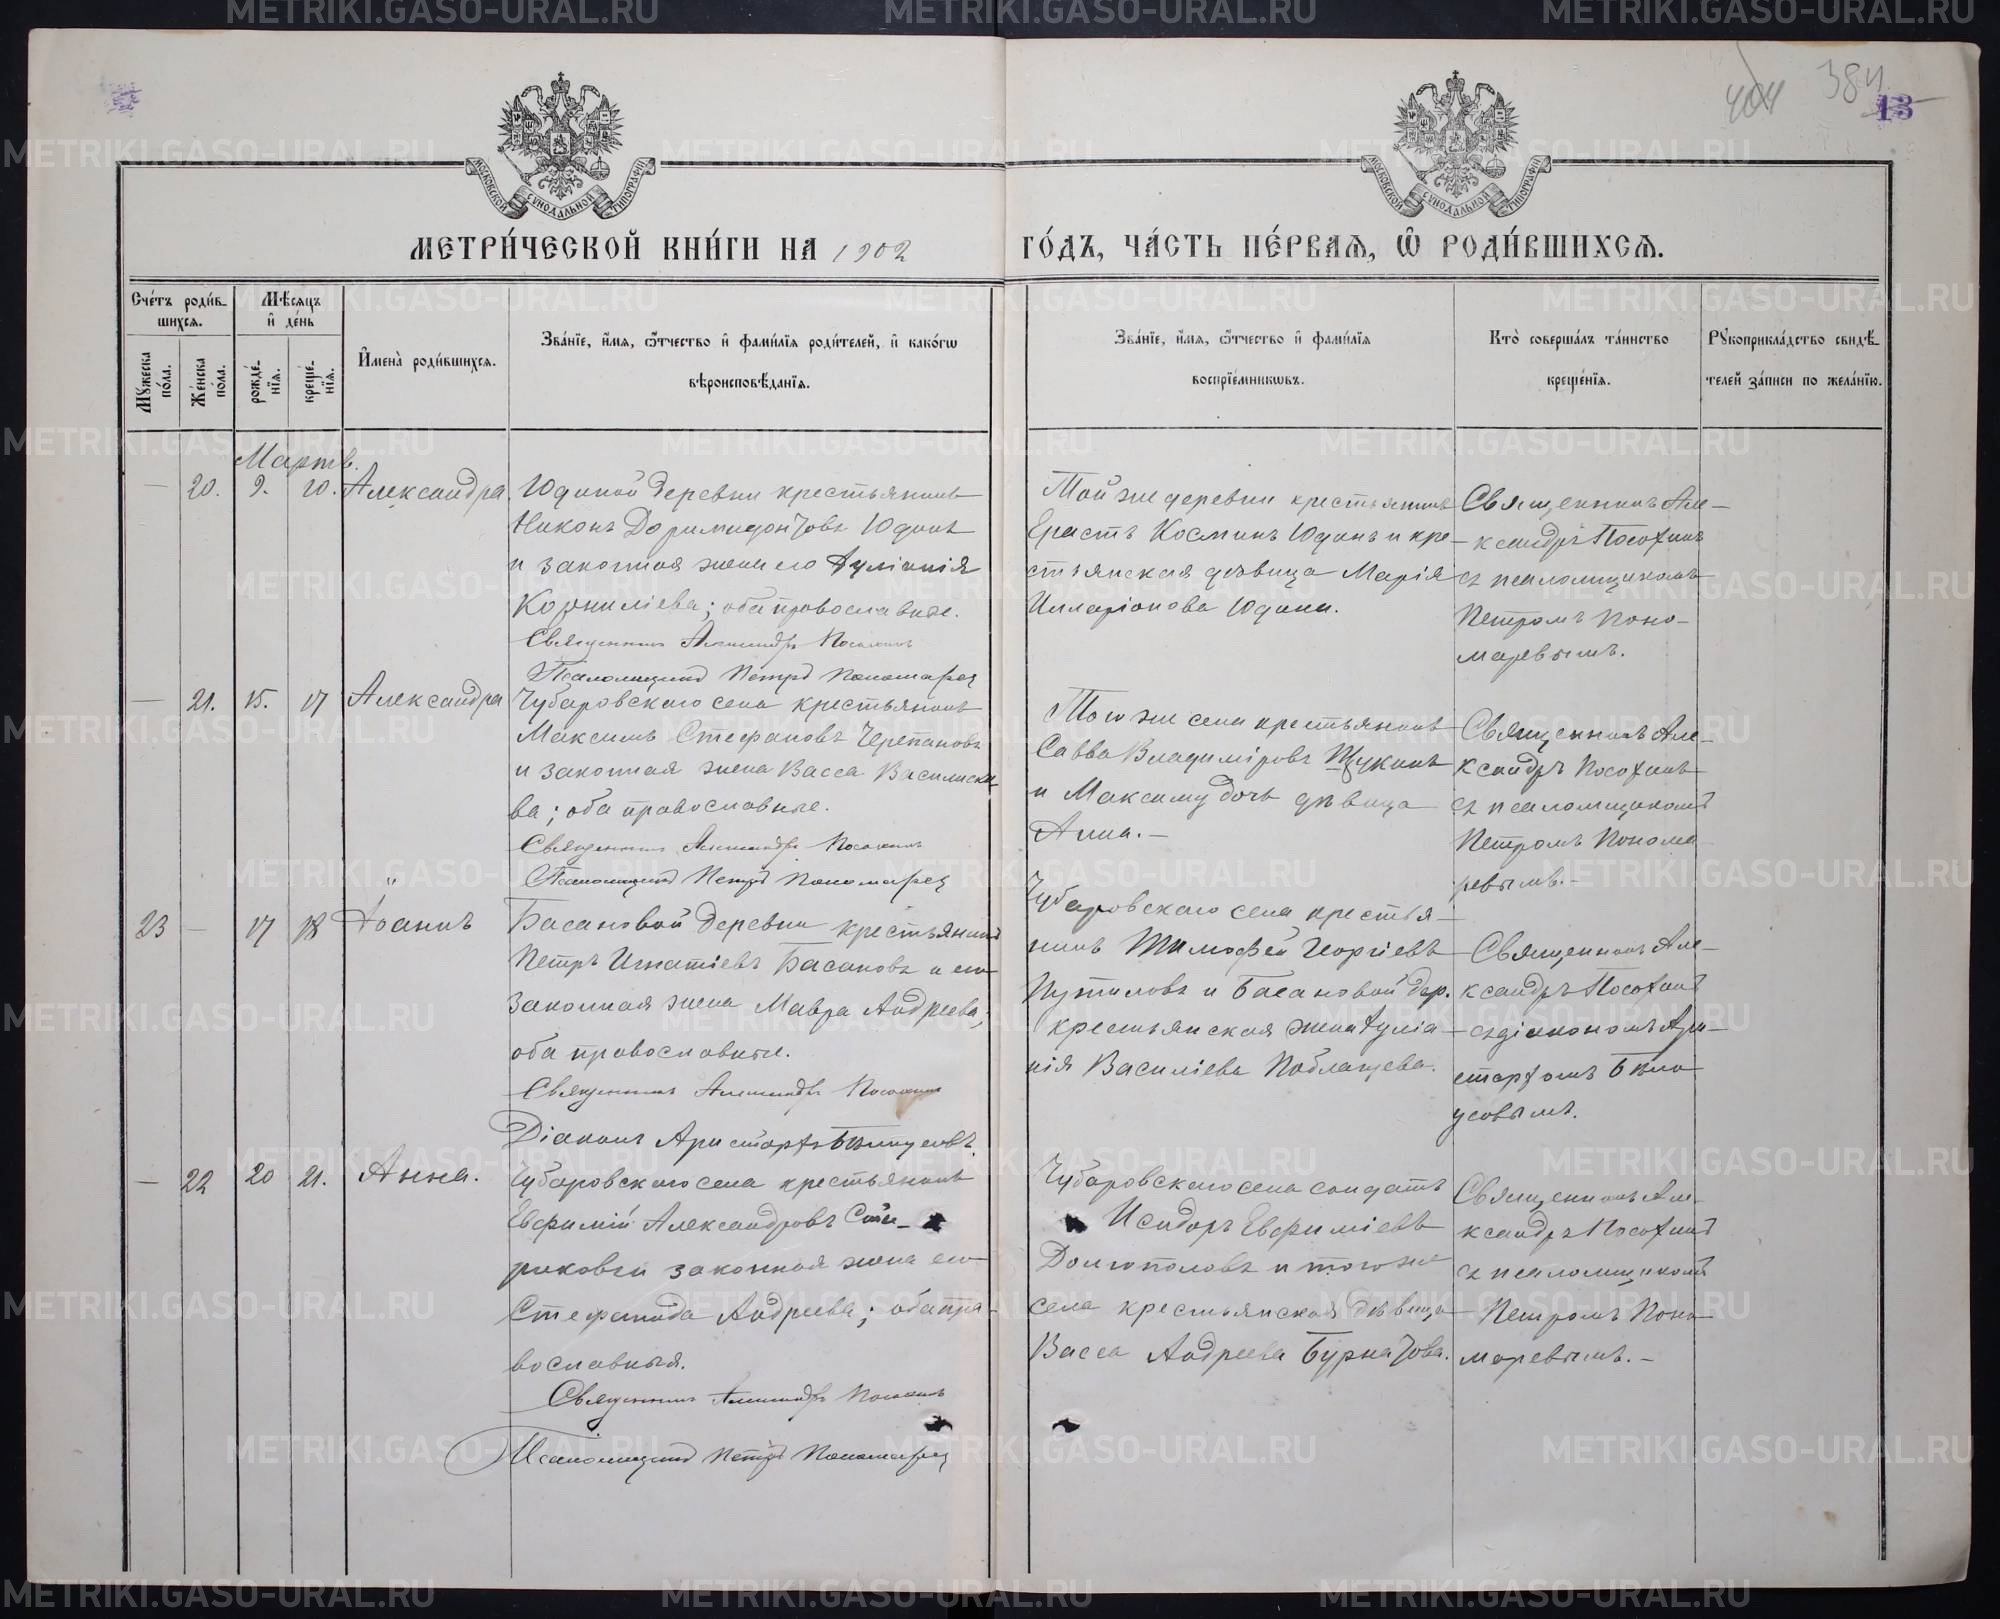 404 384
13
МОСКОВСКОЙ СѴНОДАЛЬНОЙ ТИПОГРАФІИ
МОСКОВСКОЙ СѴНОДАЛЬНОЙ ТИПОГРАФІИ
МЕТРИ́ЧЕСКОЙ КНИ́ГИ НА 1902
ГО́ДЪ, ЧА́СТЬ ПЕ́РВАѦ, Ѽ РОДИ́ВШИХСѦ.
Сче́тъ роди́в-
шихсѧ.
Мꙋ́жеска по́ла.
Же́нска по́ла.
Мѣ́сѧцъ
и҆ де́нь
рожде́-
нїѧ.
креще́-
нїѧ.
И҆мена̀ роди́вшихсѧ.
Зва́нїе, и҆́мѧ, ѻ҆́тчество и҆ фами́лїѧ роди́телей, и҆ како́гѡ
вѣроисповѣ́данїѧ.
Зва́нїе, и҆́мѧ, ѻ҆́тчество и҆ фами́лїѧ
воспрїе́мникѡвъ.
Кто̀ соверша́лъ та́инство
креще́нїѧ.
Рꙋкоприкла́дство свидѣ́-
телей за́писи по жела́нїю.
Мартъ.
— 20. 9. 10. Александра.
Юдиной деревни крестьянинъ
Никонъ Доримидонтовъ Юдинъ
и законная жена его Іуліанія
Корниліева; оба православные.
Священникъ Александръ Посохинъ
Псаломщикъ Петръ Пономаревъ
Той же деревни крестьянинъ
Ерастъ Косминъ Юдинъ и кре-
стьянская дѣвица Марія
Илларіонова Юдина.
Священникъ Але-
ксандръ Посохинъ
съ псаломщикомъ
Петромъ Поно-
маревымъ.
— 21. 15. 17 Александра
Чубаровскаго села крестьянинъ
Максимъ Стефановъ Черепановъ
и законная жена Васса Василиско-
ва; оба православные.
Священникъ Александръ Посохинъ
Псаломщикъ Петръ Пономаревъ
Того же села крестьянинъ
Савва Владиміровъ Щукинъ
и Максиму дочь дѣвица
Анна.—
Священникъ Але-
ксандръ Посохинъ
съ псаломщикомъ
Петромъ Понома-
ревымъ.—
23 — 17 18 Іоаннъ
Басановой деревни крестьянинъ
Петръ Игнатіевъ Басановъ и его
законная жена Мавра Андреева;
оба православные.
Священникъ Александръ Посохинъ
Діаконъ Аристархъ Бѣлоусовъ.
Чубаровскаго села крестья-
нинъ Тимофей Георгіевъ
Путиловъ и Басановой дер.
крестьянская жена Іуліа-
нія Василіева Поблагуева.
Священникъ Але-
ксандръ Посохинъ
съ діакономъ Ари-
стархомъ Бѣло-
усовымъ.
— 22 20 21. Анна.
Чубаровскаго села крестьянинъ
Евфимій Александровъ
законная жена его
Стефанида Андреева; оба пра-
вославныя.
Священникъ Александръ Посохинъ
Псаломщикъ Петръ Пономаревъ
Чубаровскаго села солдатъ
Исидоръ Евфиміевъ
Долгополовъ и того же
села крестьянская дѣвица
Васса Андреева Бурнатова.
Священникъ Але-
ксандръ Посохинъ
съ псаломщикомъ
Петромъ Поно-
маревымъ.—
METRIKI.GASO-URAL.RU